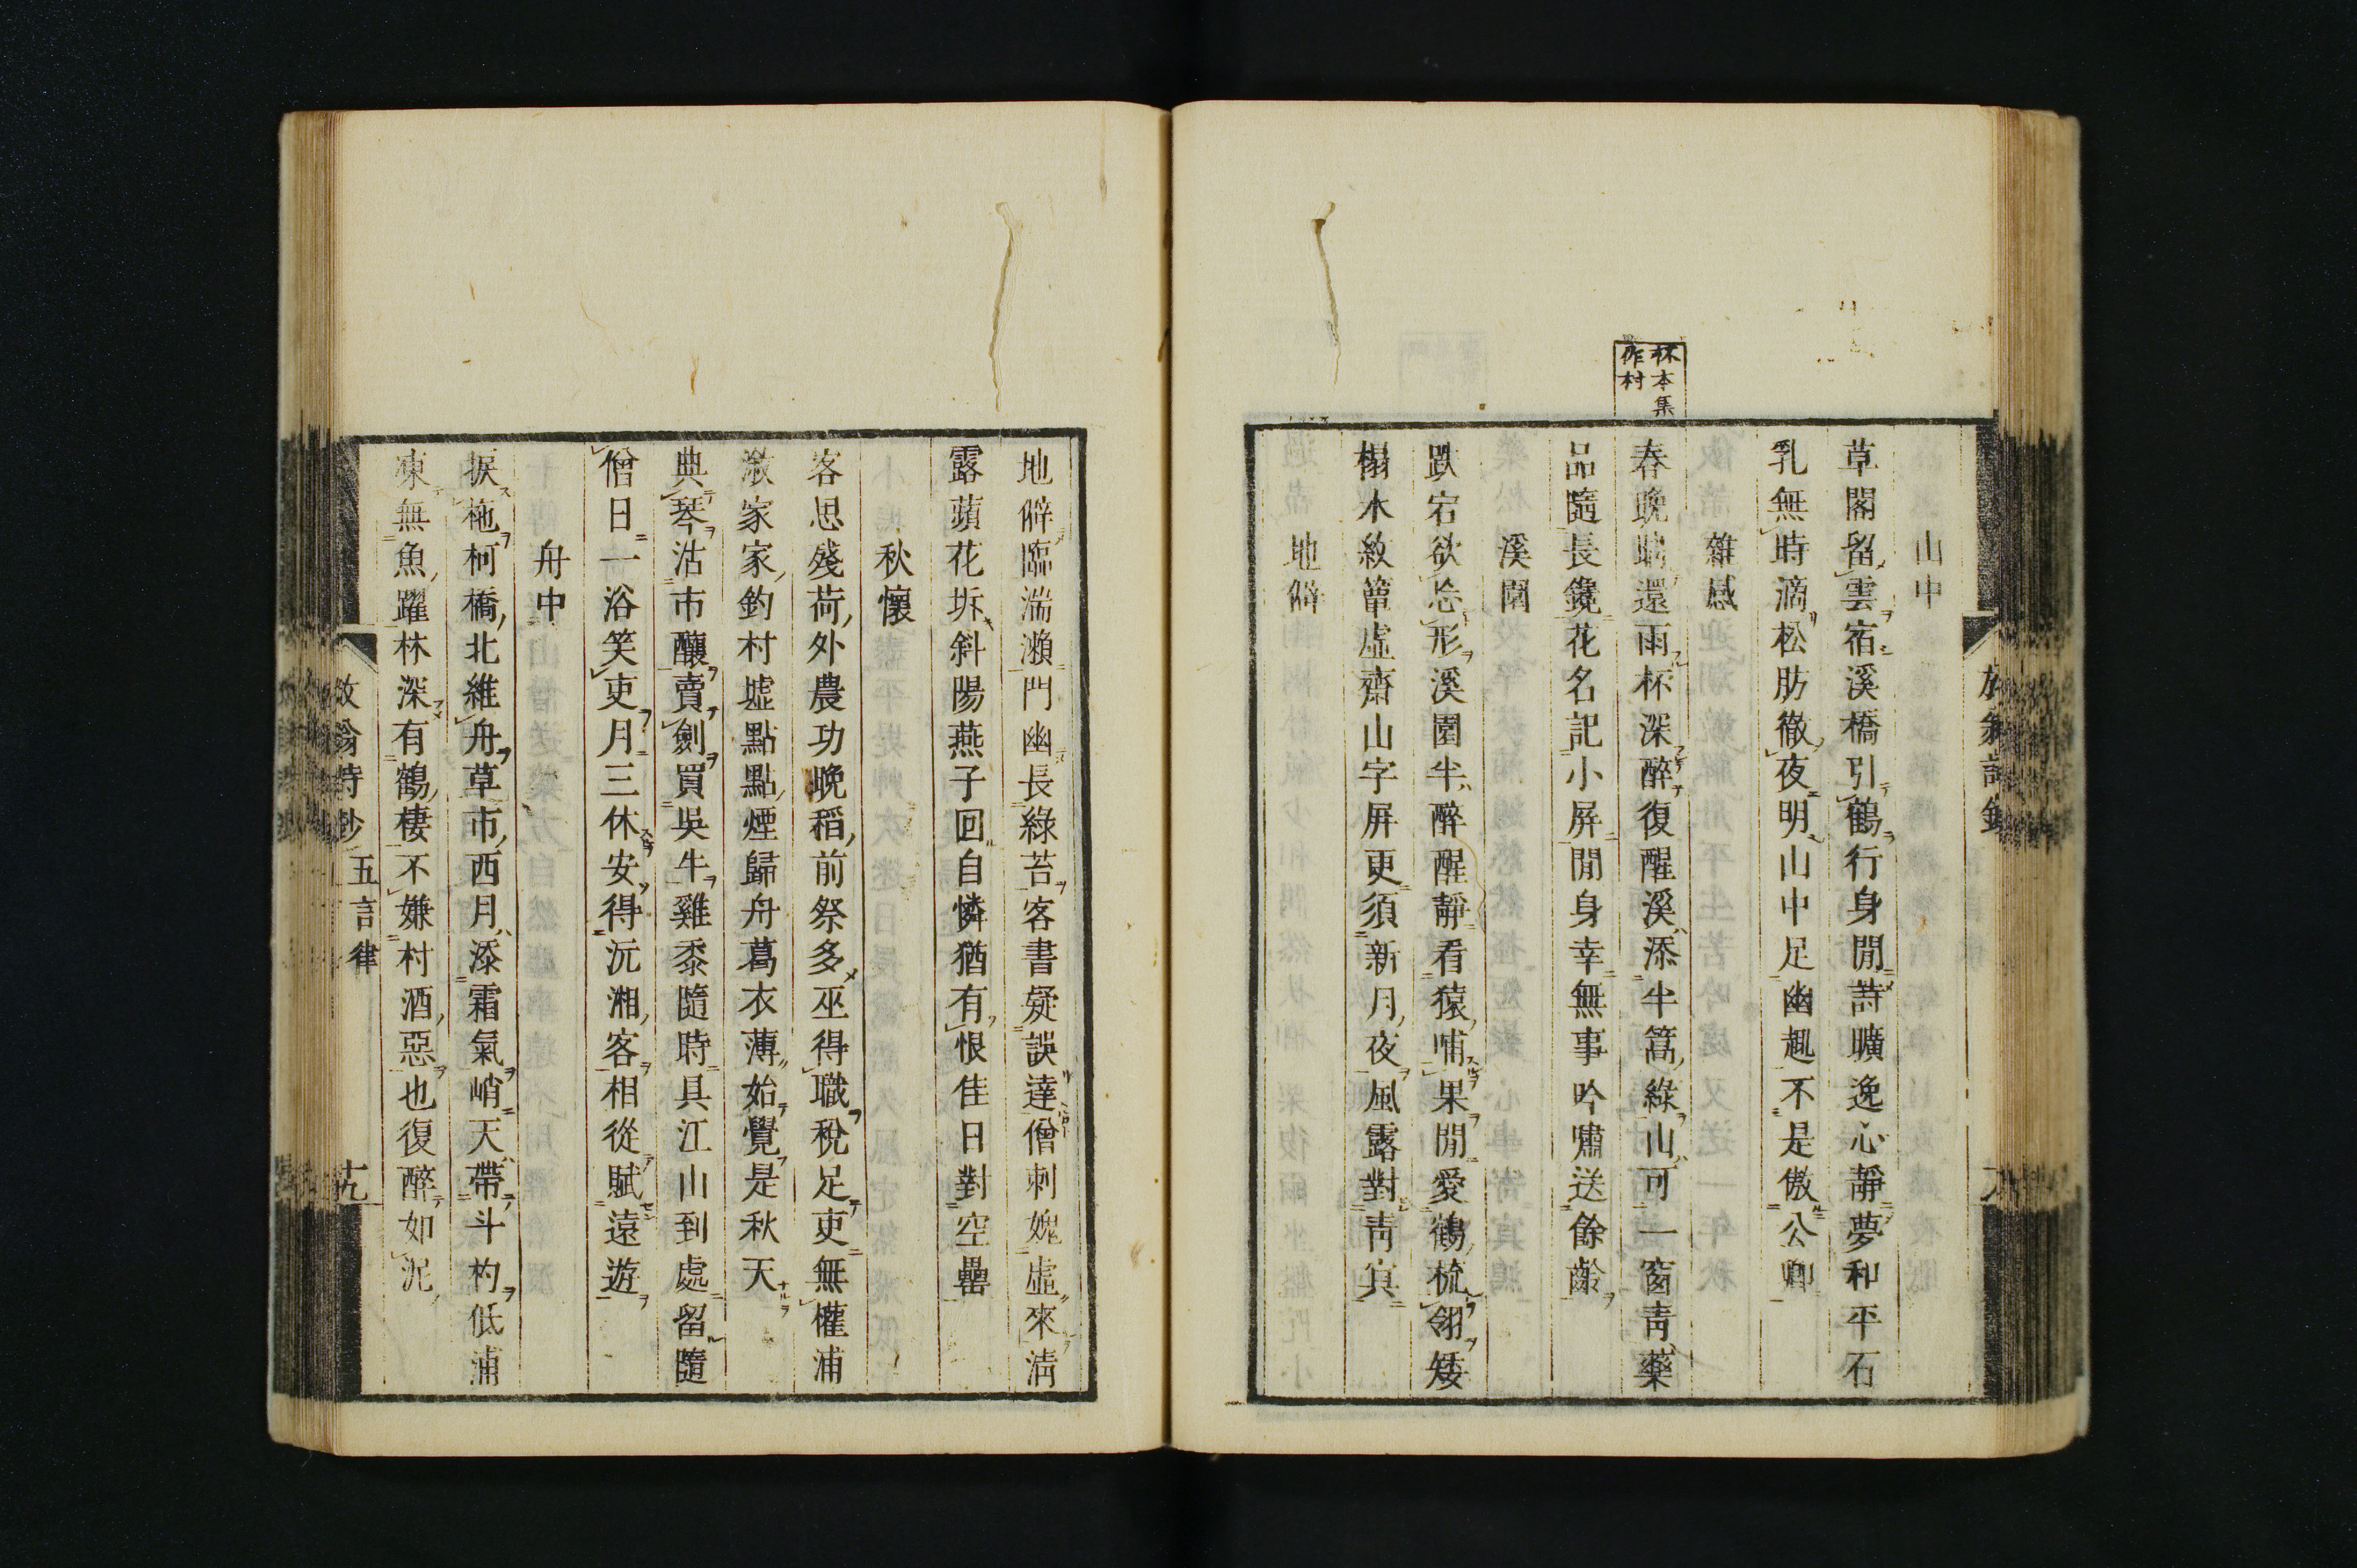 杯本集
作村
山中
草閣留雲宿溪橋引鶴行身閒詩曠逸心靜夢和平石
乳無時滴松肪徹夜明山中足幽趣不是傲公卿
雜感
春晚晴還雨杯深醉復醒溪添半篙綠山可一窗青藥
品隨長鑱花名記小屏閒身幸無事吟嘯送餘齡
溪園
跌宕欲忘形溪園半醉醒靜看猿哺果閒愛鶴梳翎矮
榻水紋簟虛齋山字屏更須新月夜風露對青冥
地僻
地僻臨湍瀨門幽長綠苔客書疑誤達僧刺媿虛來清
露蘋花坼斜陽燕子回自憐猶有恨佳日對空罍
秋懷
客思殘荷外農功晚稻前祭多巫得職稅足吏無權浦
漵家家釣村墟點點煙歸舟葛衣薄始覺是秋天
典琴沽市釀賣劍買吳牛雞黍隨時具江山到處留隨
僧日一浴笑吏月三休安得沅湘客相從賦遠遊
舟中
捩柂柯橋北維舟草市西月添霜氣峭天帶斗杓低浦
凍無魚躍林深有鶴棲不嫌村酒惡也復醉如泥
放翁詩鈔 五言律 十九